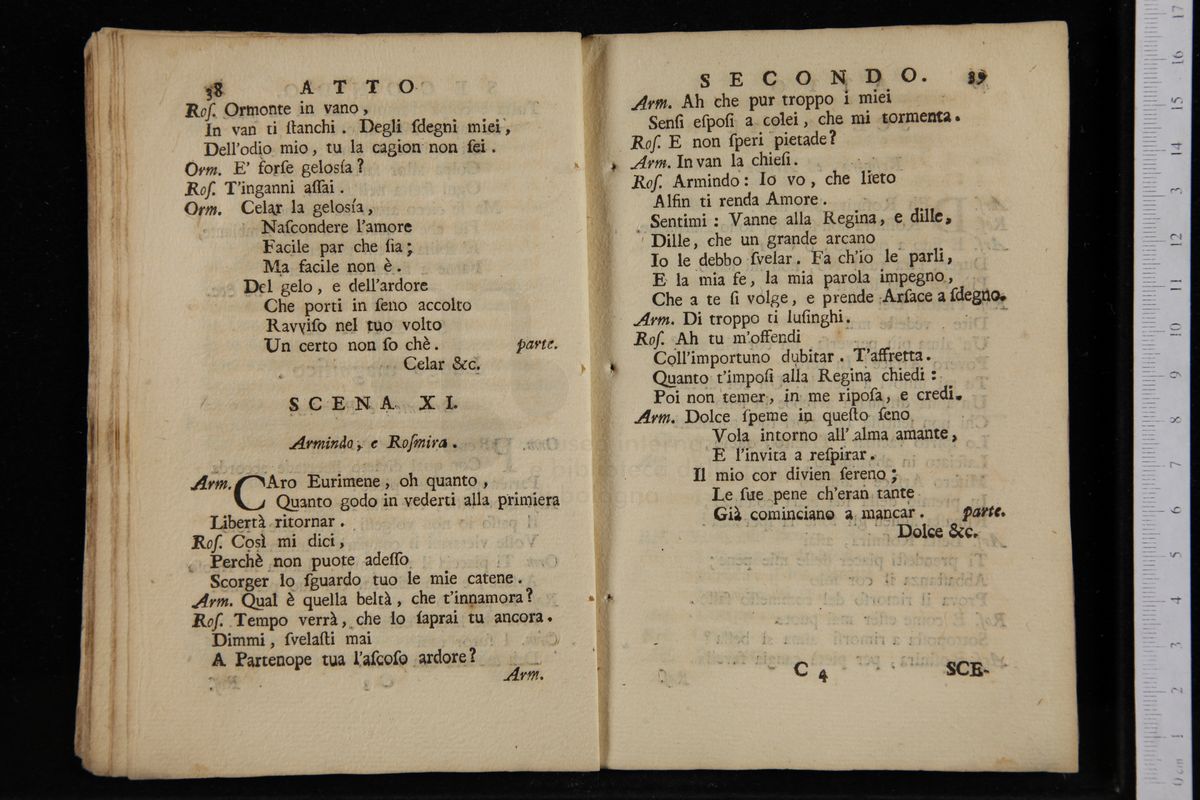 38 ATTO
Roſ. Ormonte in vano,
In van ti ſtanchi. Degli ſdegni miei,
Dell'odio mio, tu la cagion non ſei.
Orm. E' forſe geloſía?
Roſ. T'inganni aſſai.
Orm. Celar la geloſía,
Naſcondere l'amore
Facile par che ſia;
Ma facile non è.
Del gelo, e dell'ardore
Che porti in ſeno accolto
Ravviſo nel tuo volto
Un certo non ſo chè. parte.
Celar &c.
SCENA XI.
Armindo, e Roſmira.
Arm. CAro Eurimene, oh quanto,
Quanto godo in vederti alla primiera
Libertà ritornar.
Roſ. Così mi dici,
Perchè non puote adeſſo
Scorger lo ſguardo tuo le mie catene.
Arm. Qual è quella beltà, che t'innamora?
Roſ. Tempo verrà, che lo ſaprai tu ancora.
Dimmi, ſvelaſti mai
A Partenope tua l'aſcoſo ardore?
Arm.
SECONDO. 39
Arm. Ah che pur troppo i miei
Senſi eſpoſi a colei, che mi tormenta.
Roſ. E non ſperi pietade?
Arm. In van la chieſi.
Roſ. Armindo: Io vo, che lieto
Alfin ti renda Amore.
Sentimi: Vanne alla Regina, e dille,
Dille, che un grande arcano
Io le debbo ſvelar. Fa ch'io le parli,
E la mia fe, la mia parola impegno,
Che a te ſi volge, e prende Arſace a ſdegno.
Arm. Di troppo ti luſinghi.
Roſ. Ah tu m'offendi
Coll'importuno dubitar. T'affretta.
Quanto t'impoſi alla Regina chiedi:
Poi non temer, in me ripoſa, e credi.
Arm. Dolce ſpeme in queſto ſeno
Vola intorno all'alma amante,
E l'invita a reſpirar.
Il mio cor divien ſereno;
Le ſue pene ch'eran tante
Già cominciano a mancar. parte.
Dolce &c.
C 4 SCE-